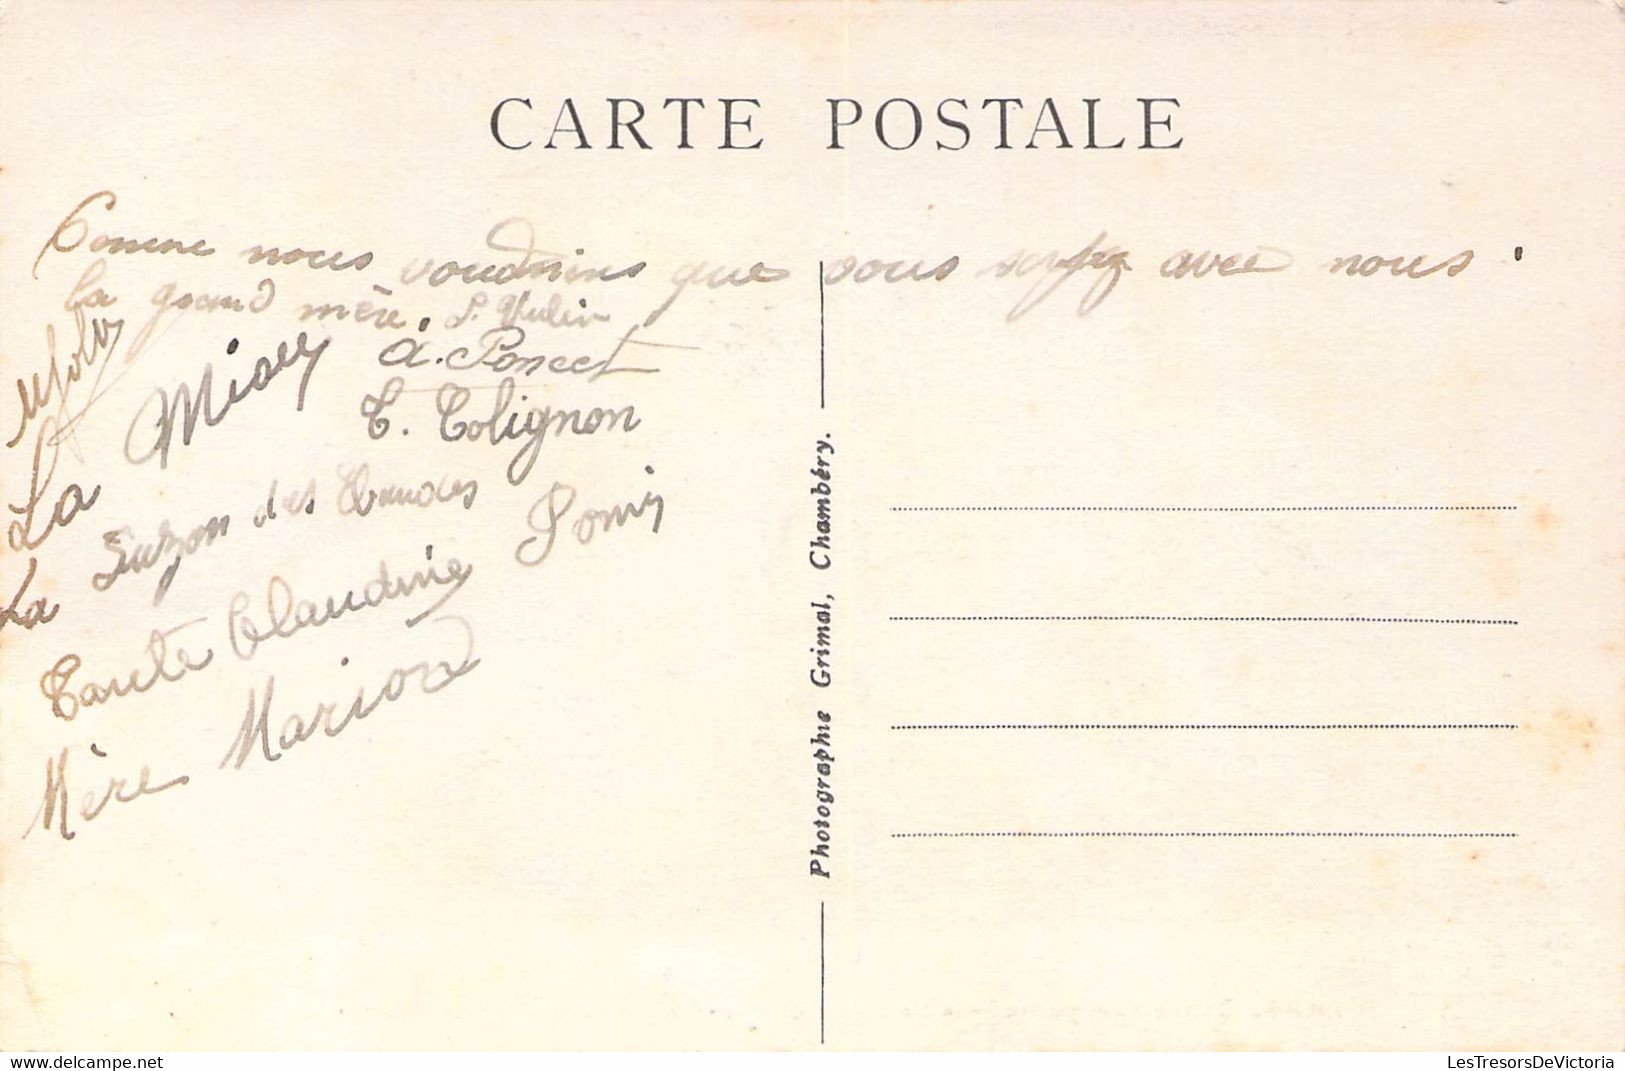 CARTE POSTALE
Comme nous voudrions que vous soyez avec nous.
La grand mère. S.
La
A. Poncet
C. Colignon
La Suzon des
Tante Claudine
Mère Marion
Photographie Grimal, Chambéry.
LesTresorsDeVictoria
delcampe.net